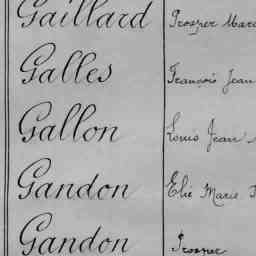 Gaillard Prosper Marc
Galles François Jean
Gallon Louis Jean
Gandon Elie Marie
Gandon Prosper